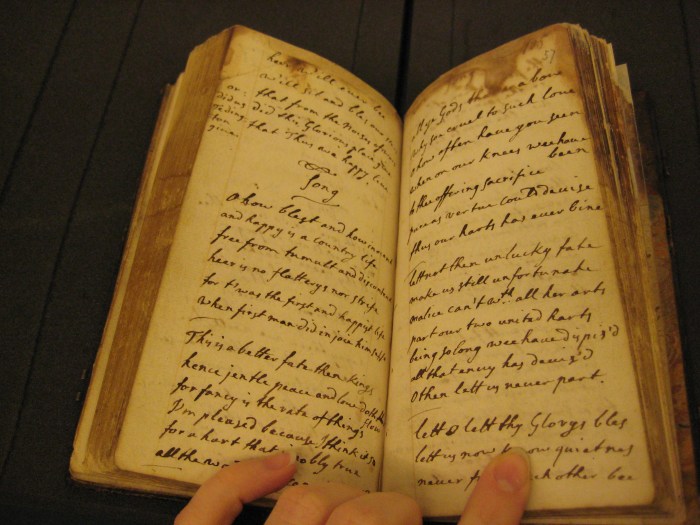 will sit and bles our
that from the noises of
did this Glorious place give
that thus our happy live
Song
O how blest and how inocent
and happy is a country life
free from tumult and discontent
heer is no flatterys nor strife
for t'was the first and happyst life
when first man did injoie himselfe
This is a better fate then kings
hence jentle peace and love doth flow
for fancy is the rate of things
I'm pleased because I think it so
for a hart that is nobly true
all the
37
ye Gods that are above
equal to such love
how often have you seen
when on our knees wee have been
the offering sacrifice
pure as vertue could devise
thus our harts has ever bine
lett not then unlucky fate
make us still unfortunate
malice can't with all her arts
part our two united harts
being so long wee have dispis'd
all that envy has devis'd
O then lett us never part.
lett O lett thy Glorys bles
lett us now to our quietnes
never each other bee